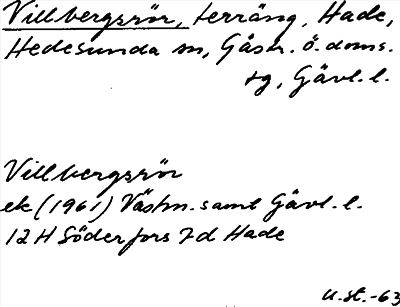 Villbergsrör, terräng, Hade,
Hedesunda sn, Gästr. ö. doms.
tg, Gävl. l.
Villbergsrör
ek (1961) Västm. samt Gävl. l.
12 H Söderfors 7d Hade
U.st.-63